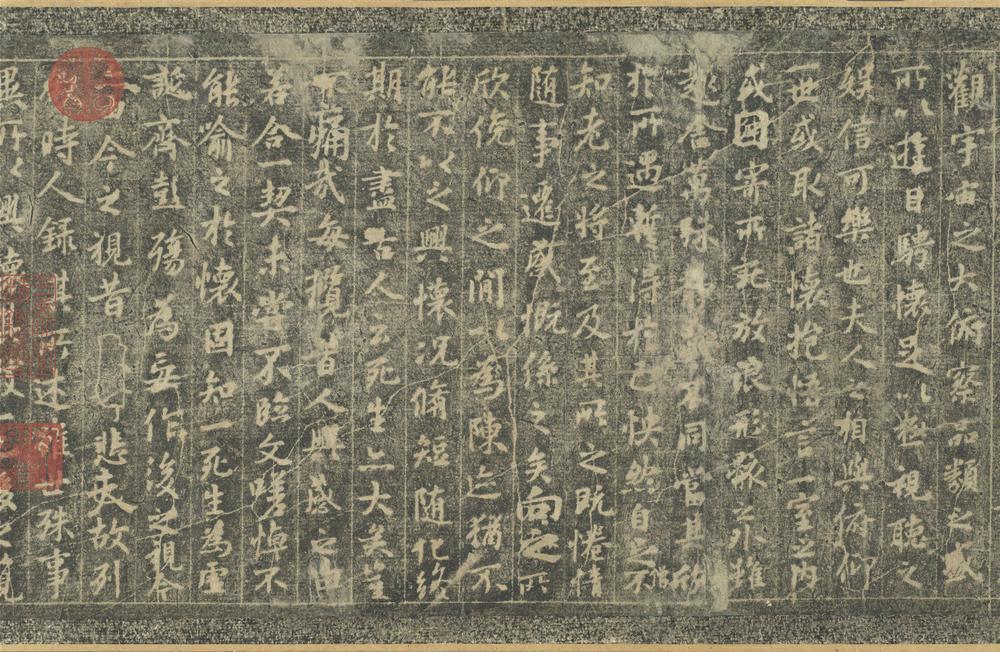 觀宇宙之大俯察品類之盛
所以遊目騁懷足以極視聽之
娛信可樂也夫人之相與俯仰
一世或取諸懷抱悟言一室之內
或因寄所託放浪形骸之外雖
趣舍萬殊靜躁不同當其欣
於所遇暫得於己快然自足不
僧
知老之將至及其所之既惓情
隨事遷感慨係之矣向之所
欣俛仰之閒以為陳迹猶不
能不以之興懷況脩短隨化終
期於盡古人云死生亦大矣豈
不痛哉每攬昔人興感之由
若合一契未嘗不臨文嗟悼不
能喻之於懷固知一死生為虛
誕齊彭殤為妄作後之視今
今之視昔悲夫故列
時人錄其所述雖世殊事
異所以興懷其致一後之覽